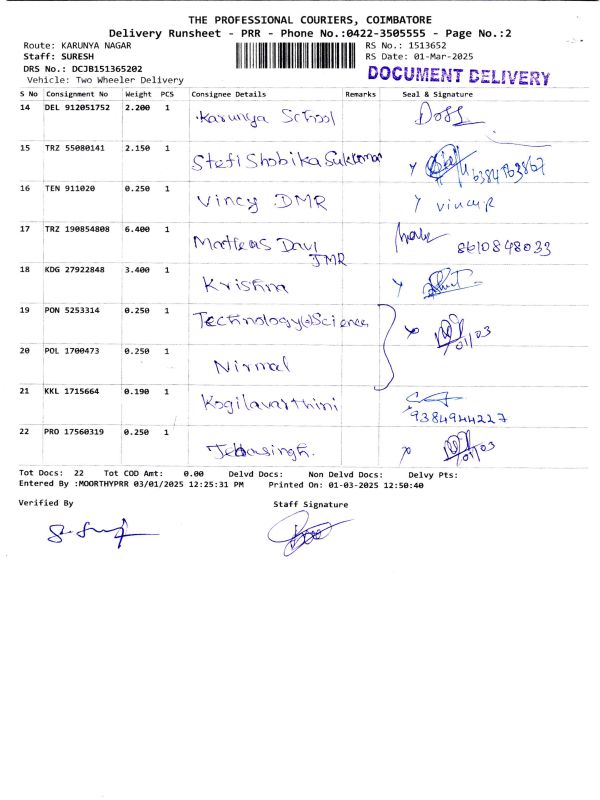 THE PROFESSIONAL COURIERS, COIMBATORE
Delivery Runsheet - PRR - Phone No.:0422-3505555 - Page No.:2
Route: KARUNYA NAGAR RS No.: 1513652
Staff: SURESH RS Date: 01-Mar-2025
DRS No.: DCJB151365202
Vehicle: Two Wheeler Delivery DOCUMENT DELIVERY
S No Consignment No Weight PCS Consignee Details Remarks Seal & Signature
14 DEL 912051752 2.200 1 Karunya School Doss
15 TRZ 55080141 2.150 1 Stefi Shobika Sukumar
16 TEN 911020 0.250 1 Vincy DMR Vincy R
17 TRZ 190854808 6.400 1 Davi JMR 8610848033
18 KDG 27922848 3.400 1 Krishna
19 PON 5253314 0.250 1 Technology & Science 01/03
20 POL 1700473 0.250 1 Nirmal
21 KKL 1715664 0.190 1 Kogilavarthini 9384944227
22 PRO 17560319 0.250 1 Jebasingh. 01/03
Tot Docs: 22 Tot COD Amt: 0.00 Delvd Docs: Non Delvd Docs: Delvy Pts:
Entered By :MOORTHYPRR 03/01/2025 12:25:31 PM Printed On: 01-03-2025 12:50:40
Verified By Staff Signature